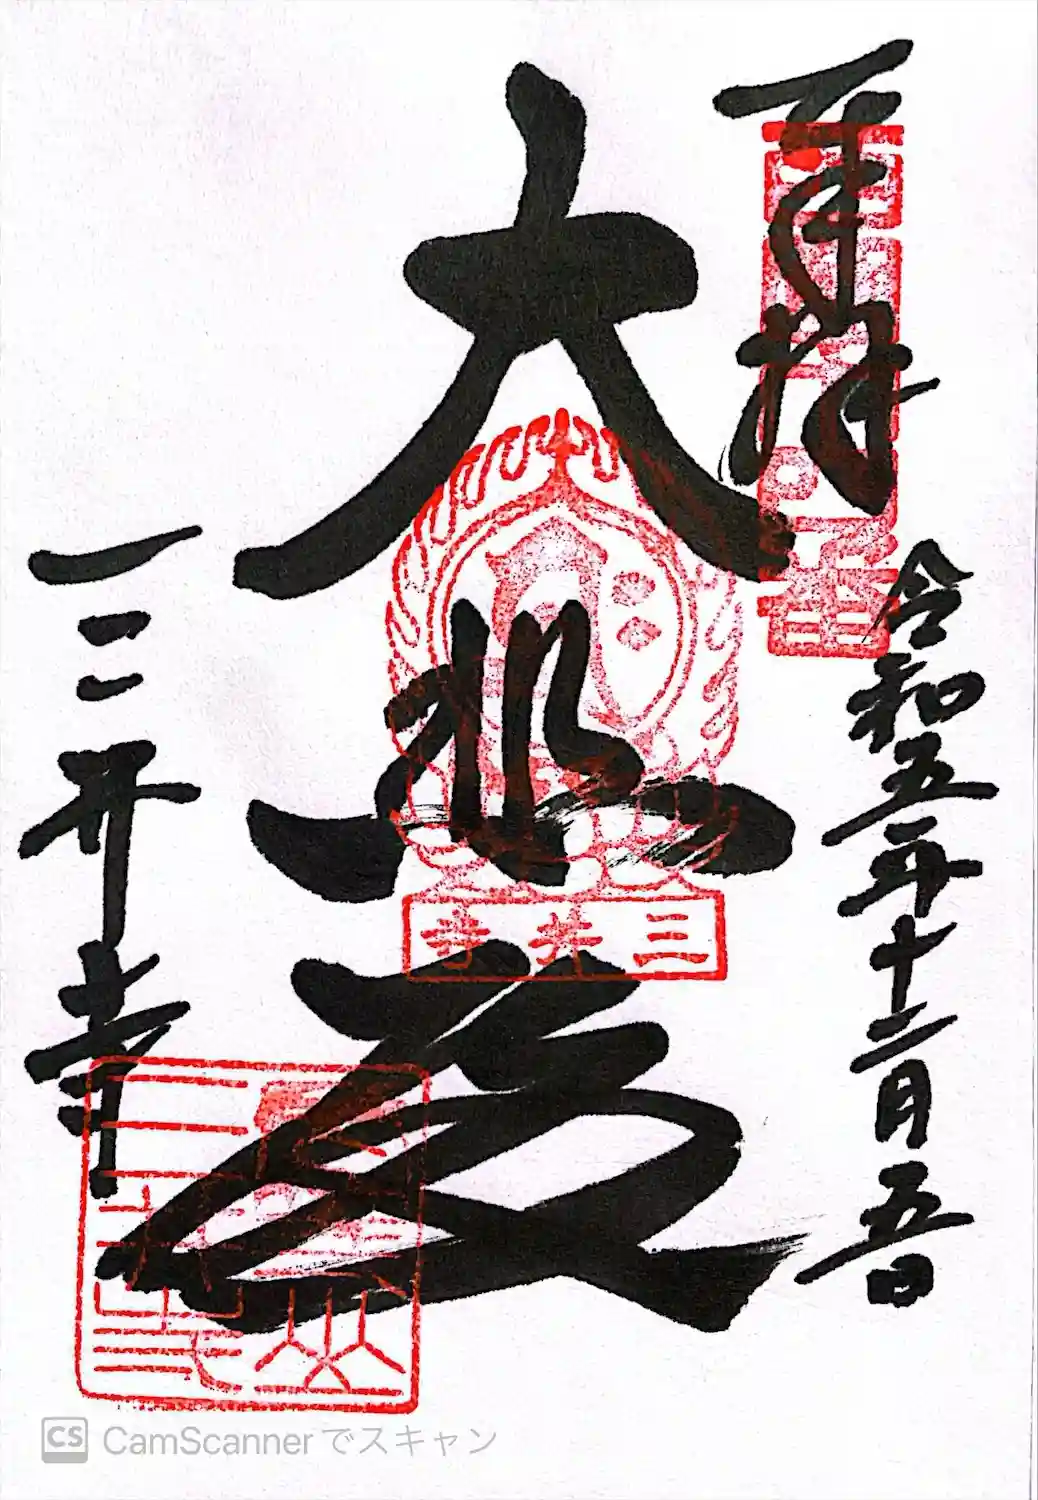 奉拝
令和五年十二月五日
大悲殿
三井寺
三井寺
CamScannerでスキャン